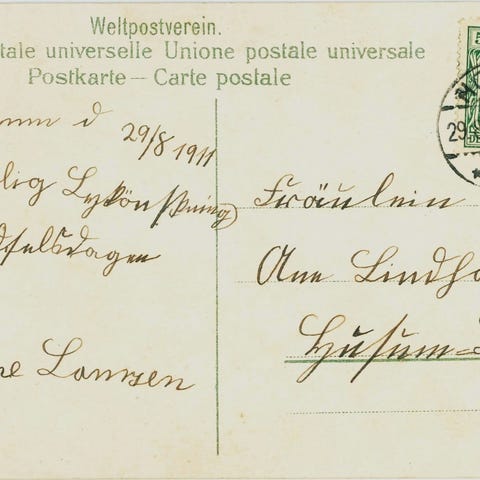 Weltpostverein.
tale universelle Unione postale universale
Postkarte – Carte postale
d 29/8 1911
lig Lykönskning
dselsdagen
ne
Fräulein
Ane Lindho
Husum-
5
29